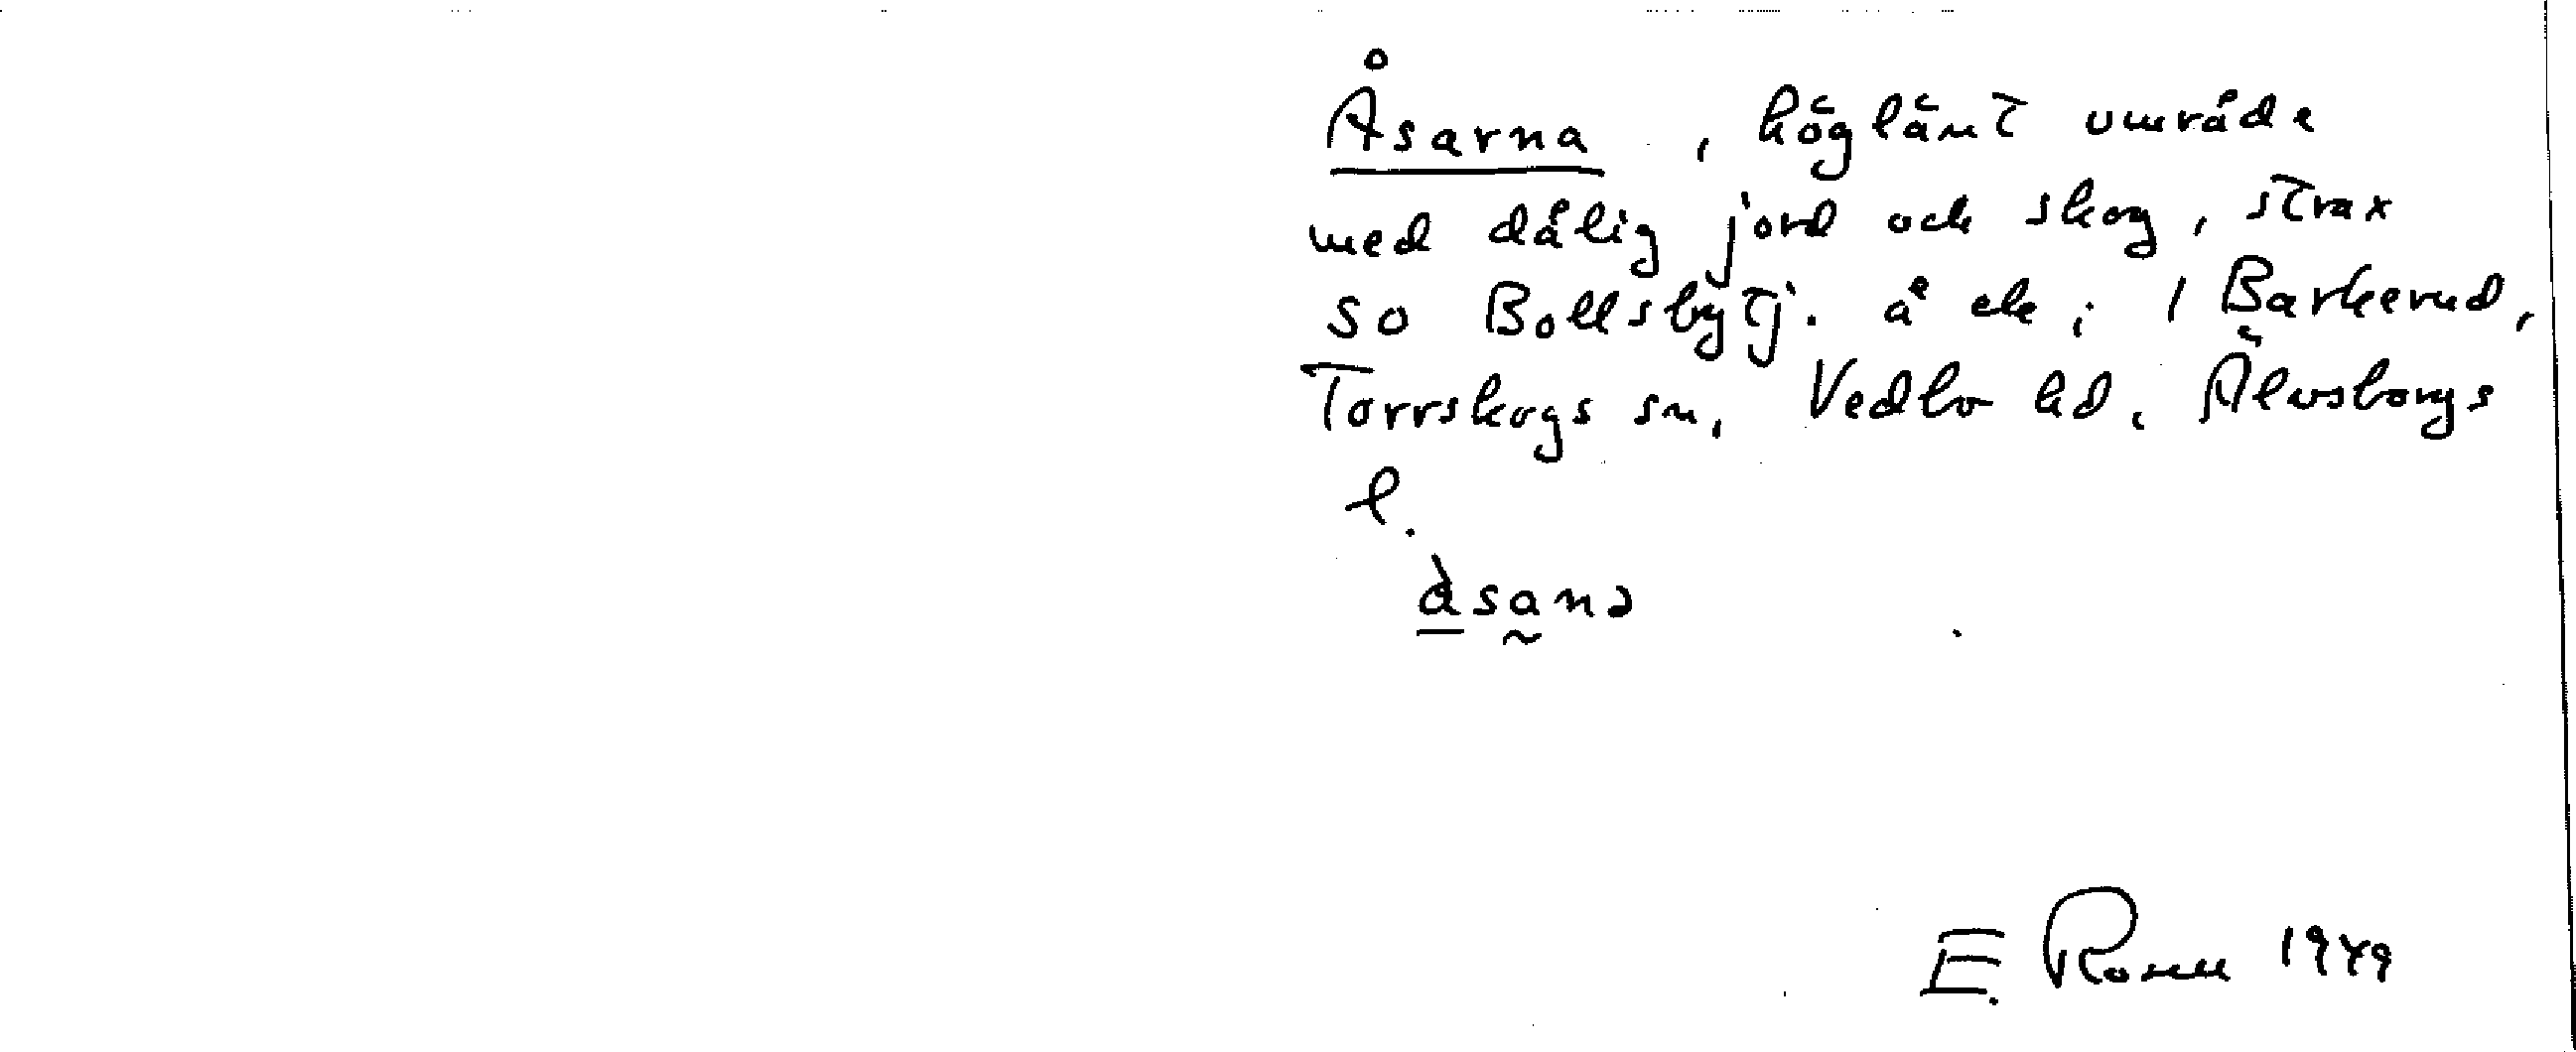 Åsarna, höglänt område
med dålig jord och skog, strax
SO Bollsbytj. å ek; 1 Barkerud,
Torrskogs sn, Vedbo hd, Älvsborgs
l.
åsanə
E. Rosell 1949